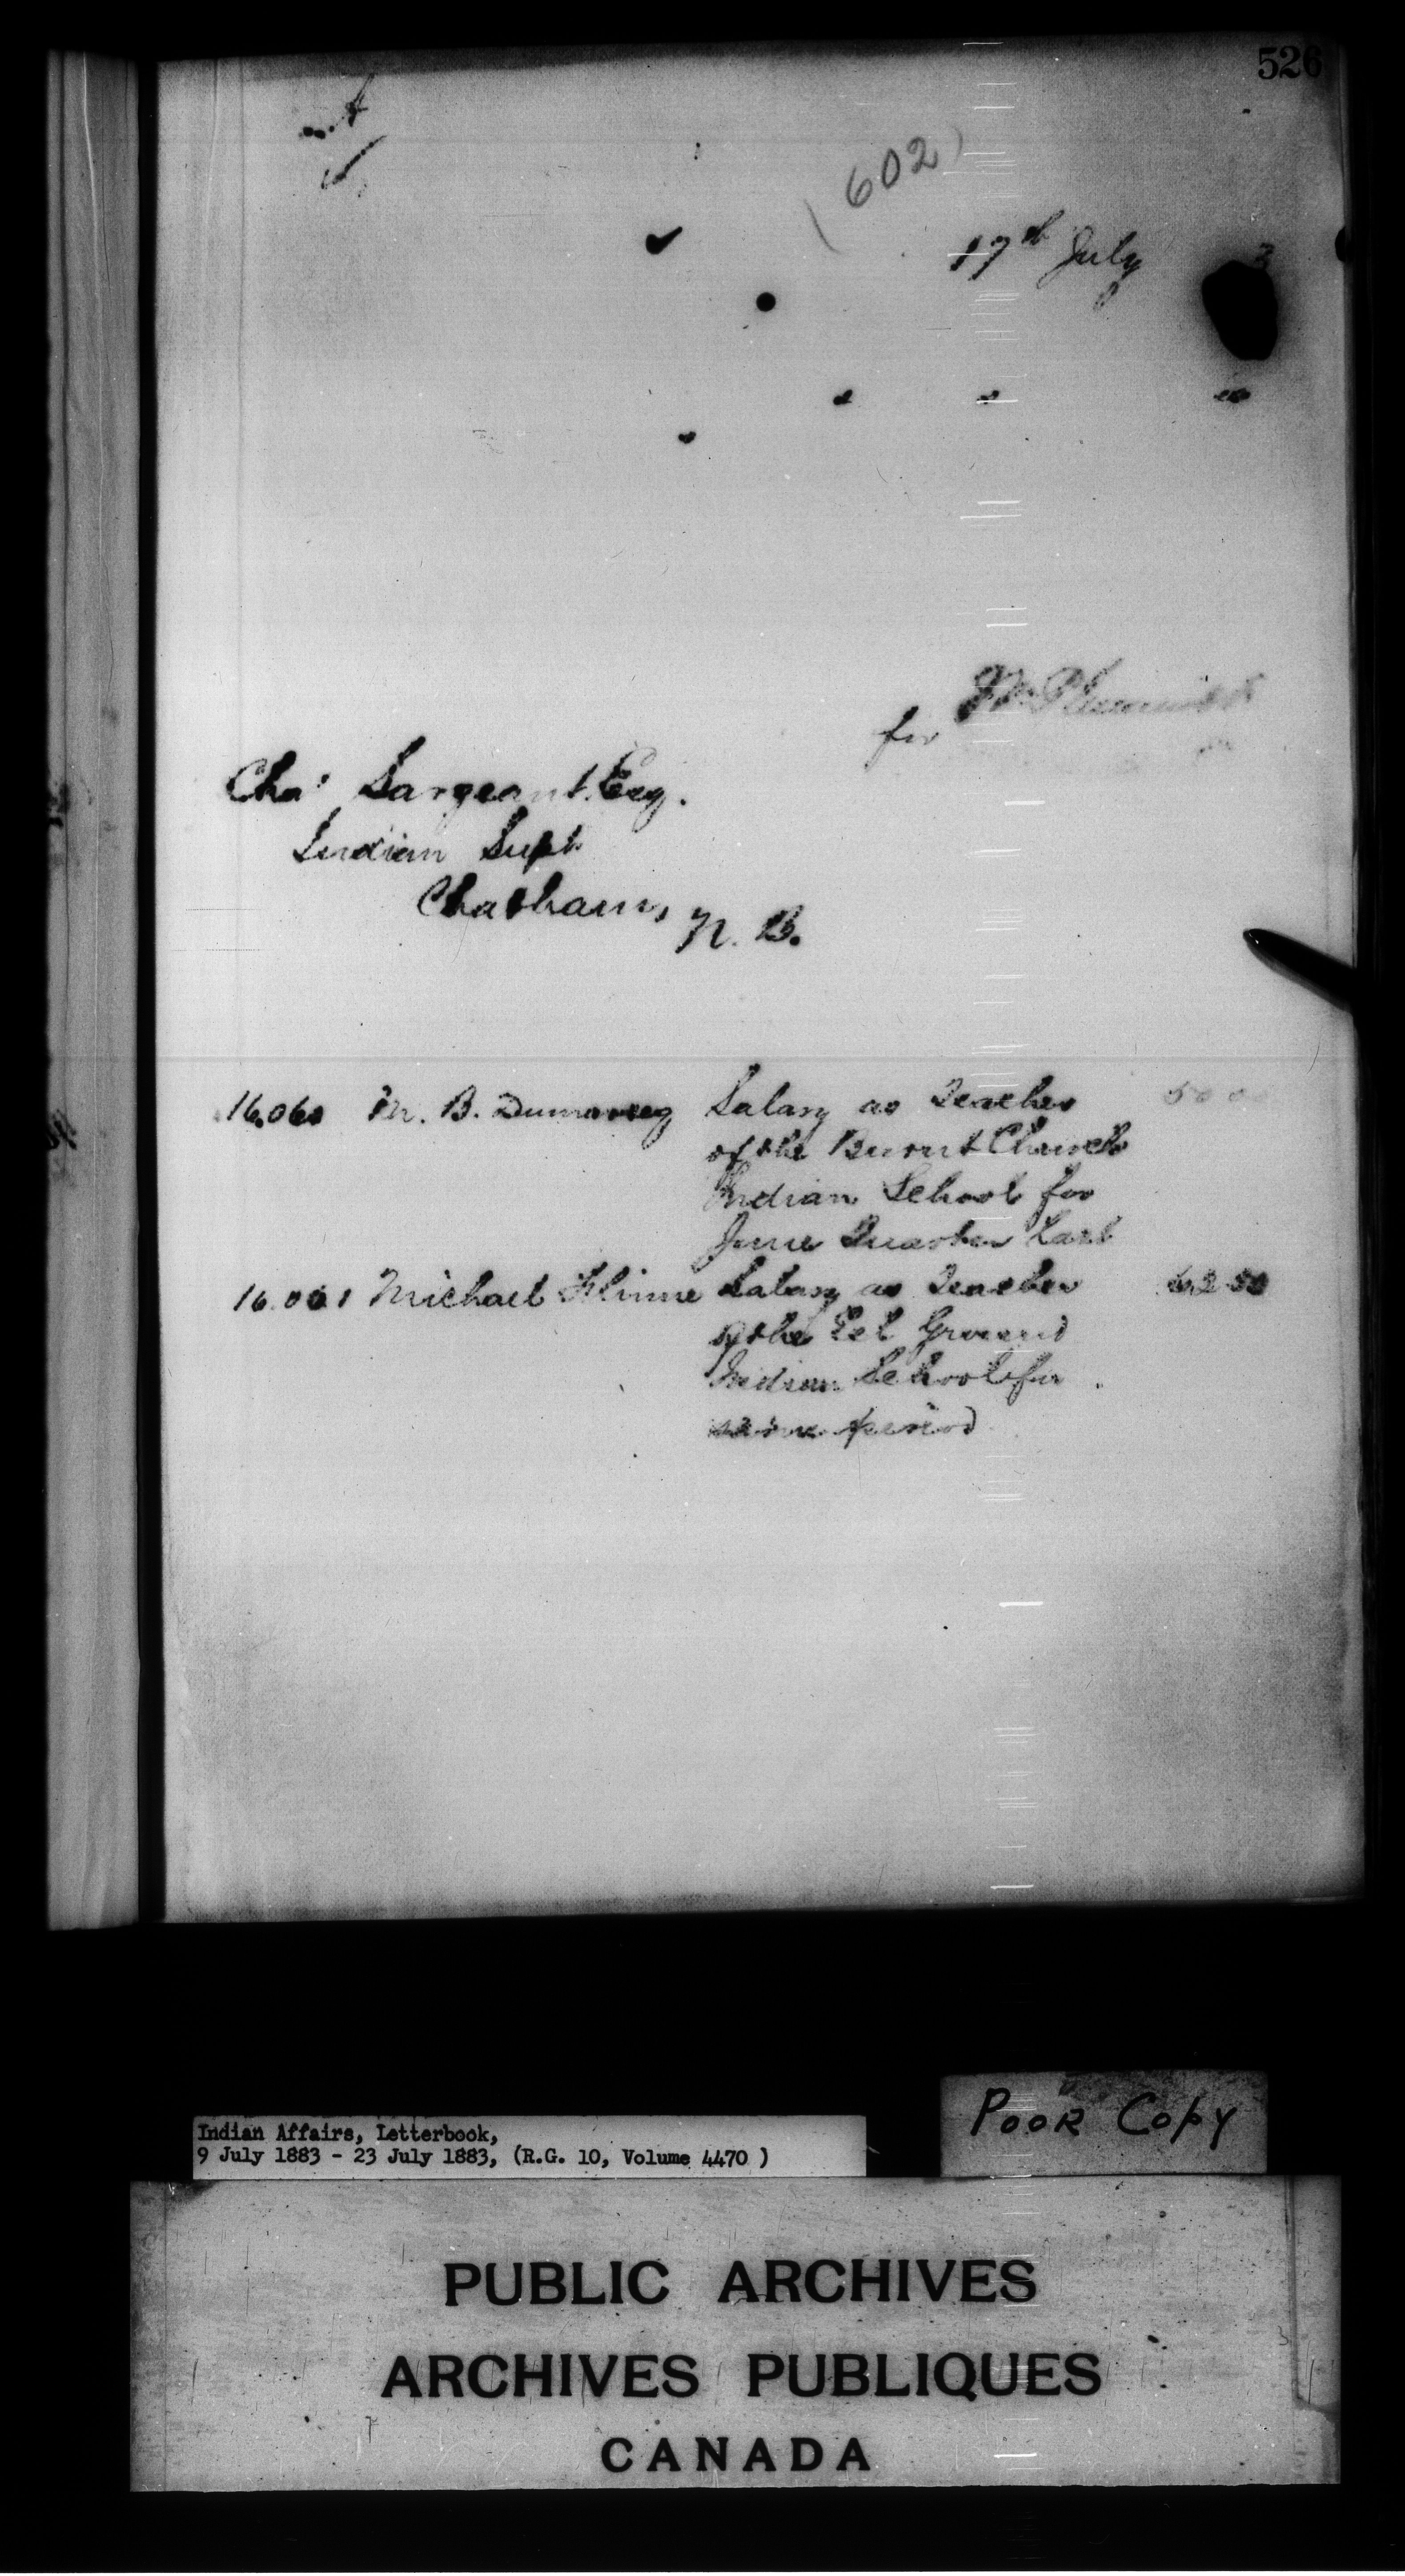 526
(602)
17th July 3
for
Chas Sargeant Esq.
Indian Supt
Chatham, N. B.
16,060 M. B. Dumaresq Salary as Teacher 50 00
of the Burnt Church
Indian School for
June Quarter last
16.061 Michael Flinne Salary as Teacher 62 50
of the Eel Ground
Indian School for
same period
Poor Copy
Indian Affairs, Letterbook,
9 July 1883 - 23 July 1883, (R.G. 10, Volume 4470 )
PUBLIC ARCHIVES
ARCHIVES PUBLIQUES
CANADA